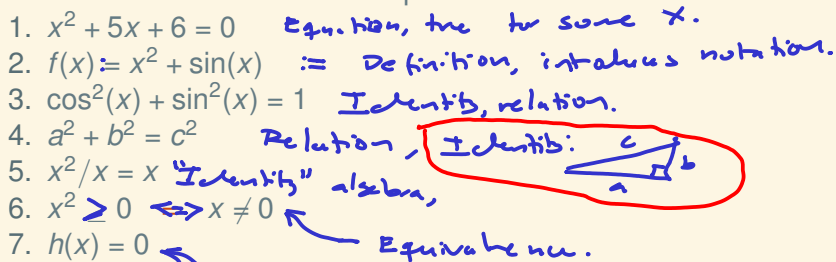 1. x² + 5x + 6 = 0 Equation, true for some x.
2. f(x) := x² + sin(x) := Definition, introduces notation.
3. cos²(x) + sin²(x) = 1 Identity, relation.
4. a² + b² = c² Relation, Identity: c b a
5. x²/x = x "Identity" algebra,
6. x² ≥ 0 <=> x ≠ 0
7. h(x) = 0 Equivalence.